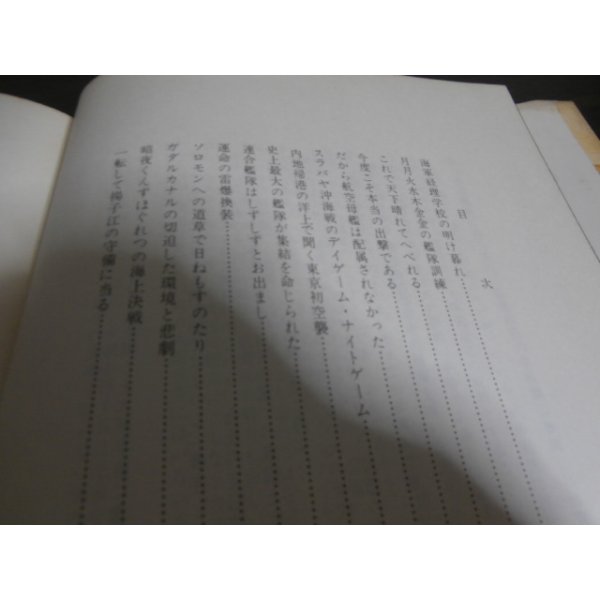 目次
海軍経理学校の明け暮れ
月月火水木金金の艦隊訓練
これで天下晴れてへべれる
今度こそ本当の出撃である
だから航空母艦は配属されなかった
スラバヤ沖海戦のデイゲーム・ナイトゲーム
内地帰港の洋上で聞く東京初空襲
史上最大の艦隊が集結を命じられた
連合艦隊はしずしずとお出まし
運命の雷爆換装
ソロモンへの道草で日ねもすのたり
ガダルカナルの切迫した環境と悲劇
暗夜くんずほぐれつの海上決戦
一転して揚子江の守備に当る